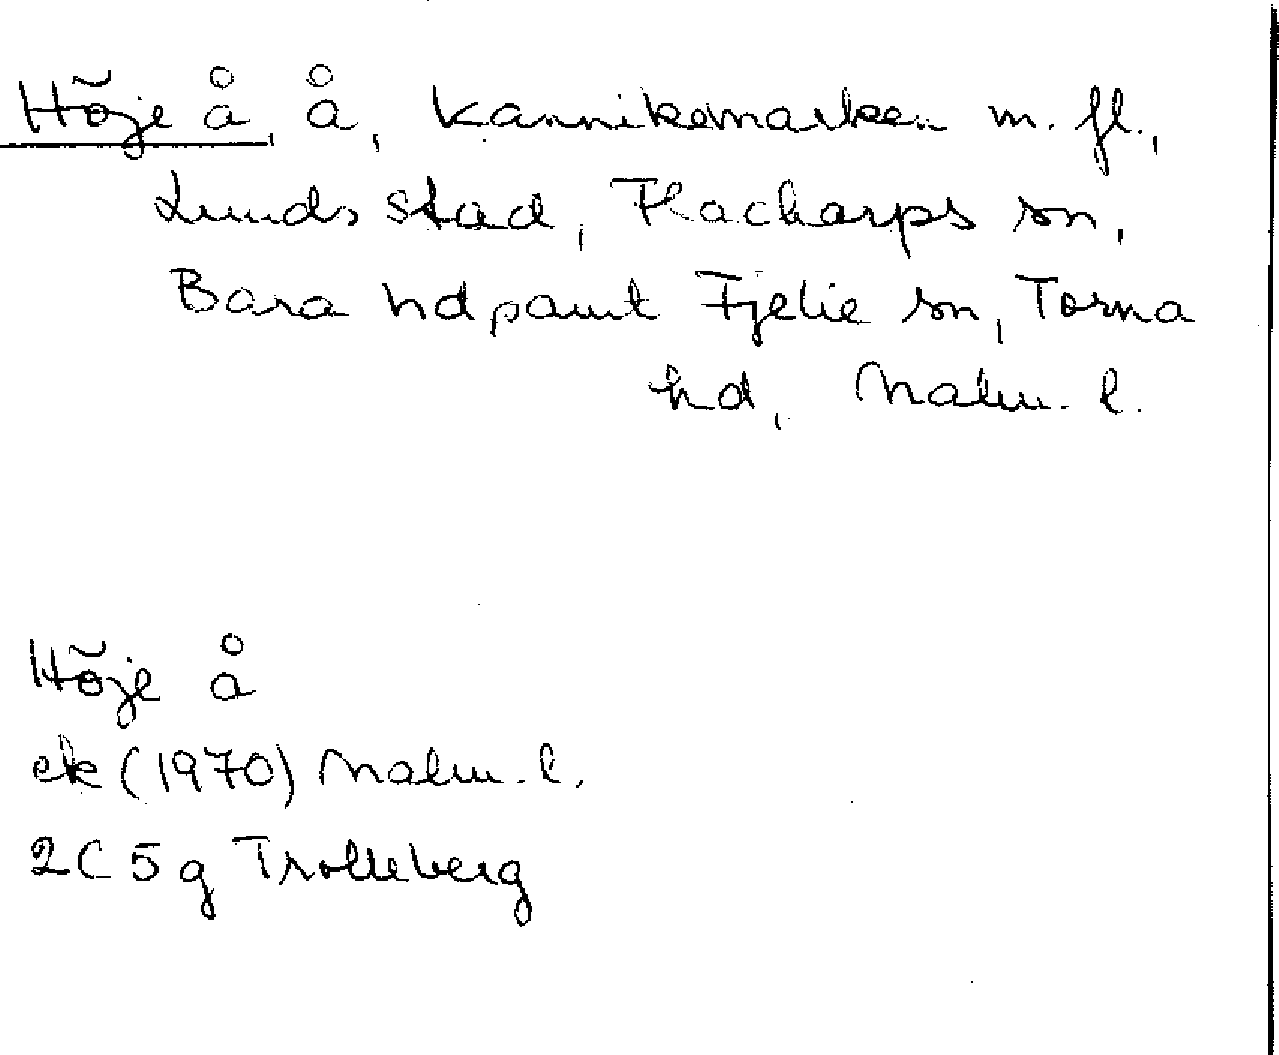 Höje å, å, Kannikemarken m. fl.,
Lunds stad, Flackarps sn,
Bara hd samt Fjelie sn, Torna
hd, Malm. l.
Höje å
ek (1970) Malm. l.
2C 5g Trolleberg